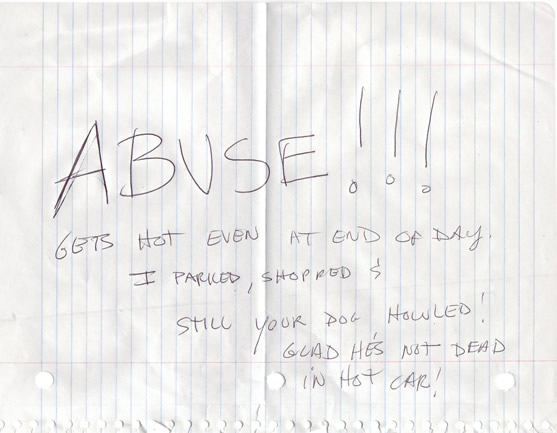 ABUSE!!!
GETS HOT EVEN AT END OF DAY.
I PARKED, SHOPPED &
STILL YOUR DOG HOWLED!
GLAD HE'S NOT DEAD
IN HOT CAR!